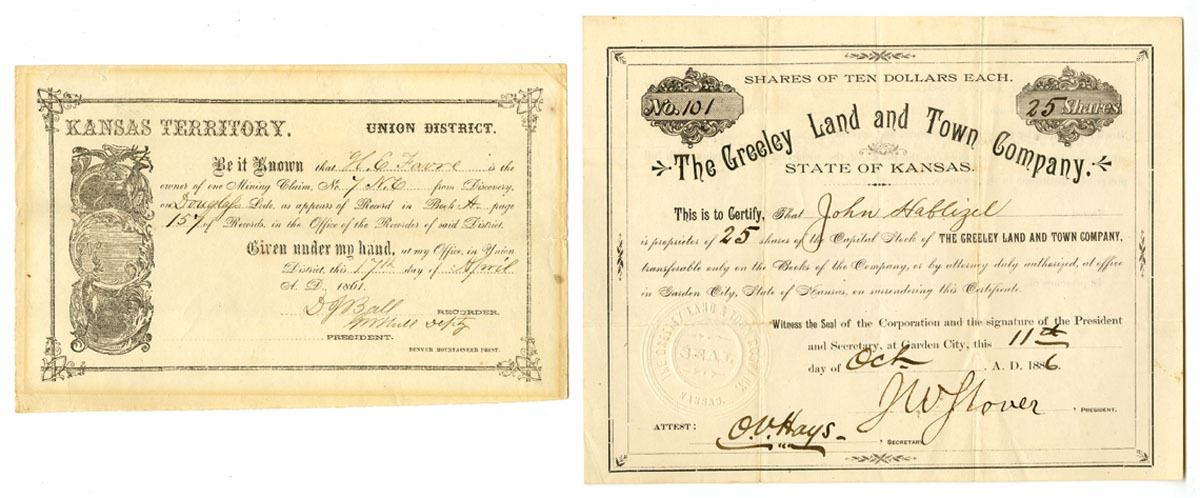 KANSAS TERRITORY. UNION DISTRICT.
Be it Known that H. C. Favre is the
owner of one Mining Claim, No. 7 N.E from Discovery,
on Douglass Lode, as appears of Record in Book A page
157 of Records, in the Office of the Recorder of said District.
Given under my hand, at my Office, in Union
District, this 17th day of April
A. D., 1861.
D J Ball RECORDER.
Depty
PRESIDENT.
DENVER MOUNTAINEER PRINT.
SHARES OF TEN DOLLARS EACH.
No. 101
25 Shares
The Greeley Land and Town Company.
STATE OF KANSAS.
This is to Certify, That John Hablizel
is proprietor of 25 shares of the Capital Stock of THE GREELEY LAND AND TOWN COMPANY,
transferable only on the Books of the Company, or by attorney duly authorized, at office
in Garden City, State of Kansas, on surrendering this Certificate.
Witness the Seal of the Corporation and the signature of the President
and Secretary, at Garden City, this 11th
day of Oct A. D. 1886.
THE GREELEY LAND & TOWN COMPANY.
SEAL
KANSAS.
J W Stover, PRESIDENT.
ATTEST: O. V. Hays, SECRETARY.